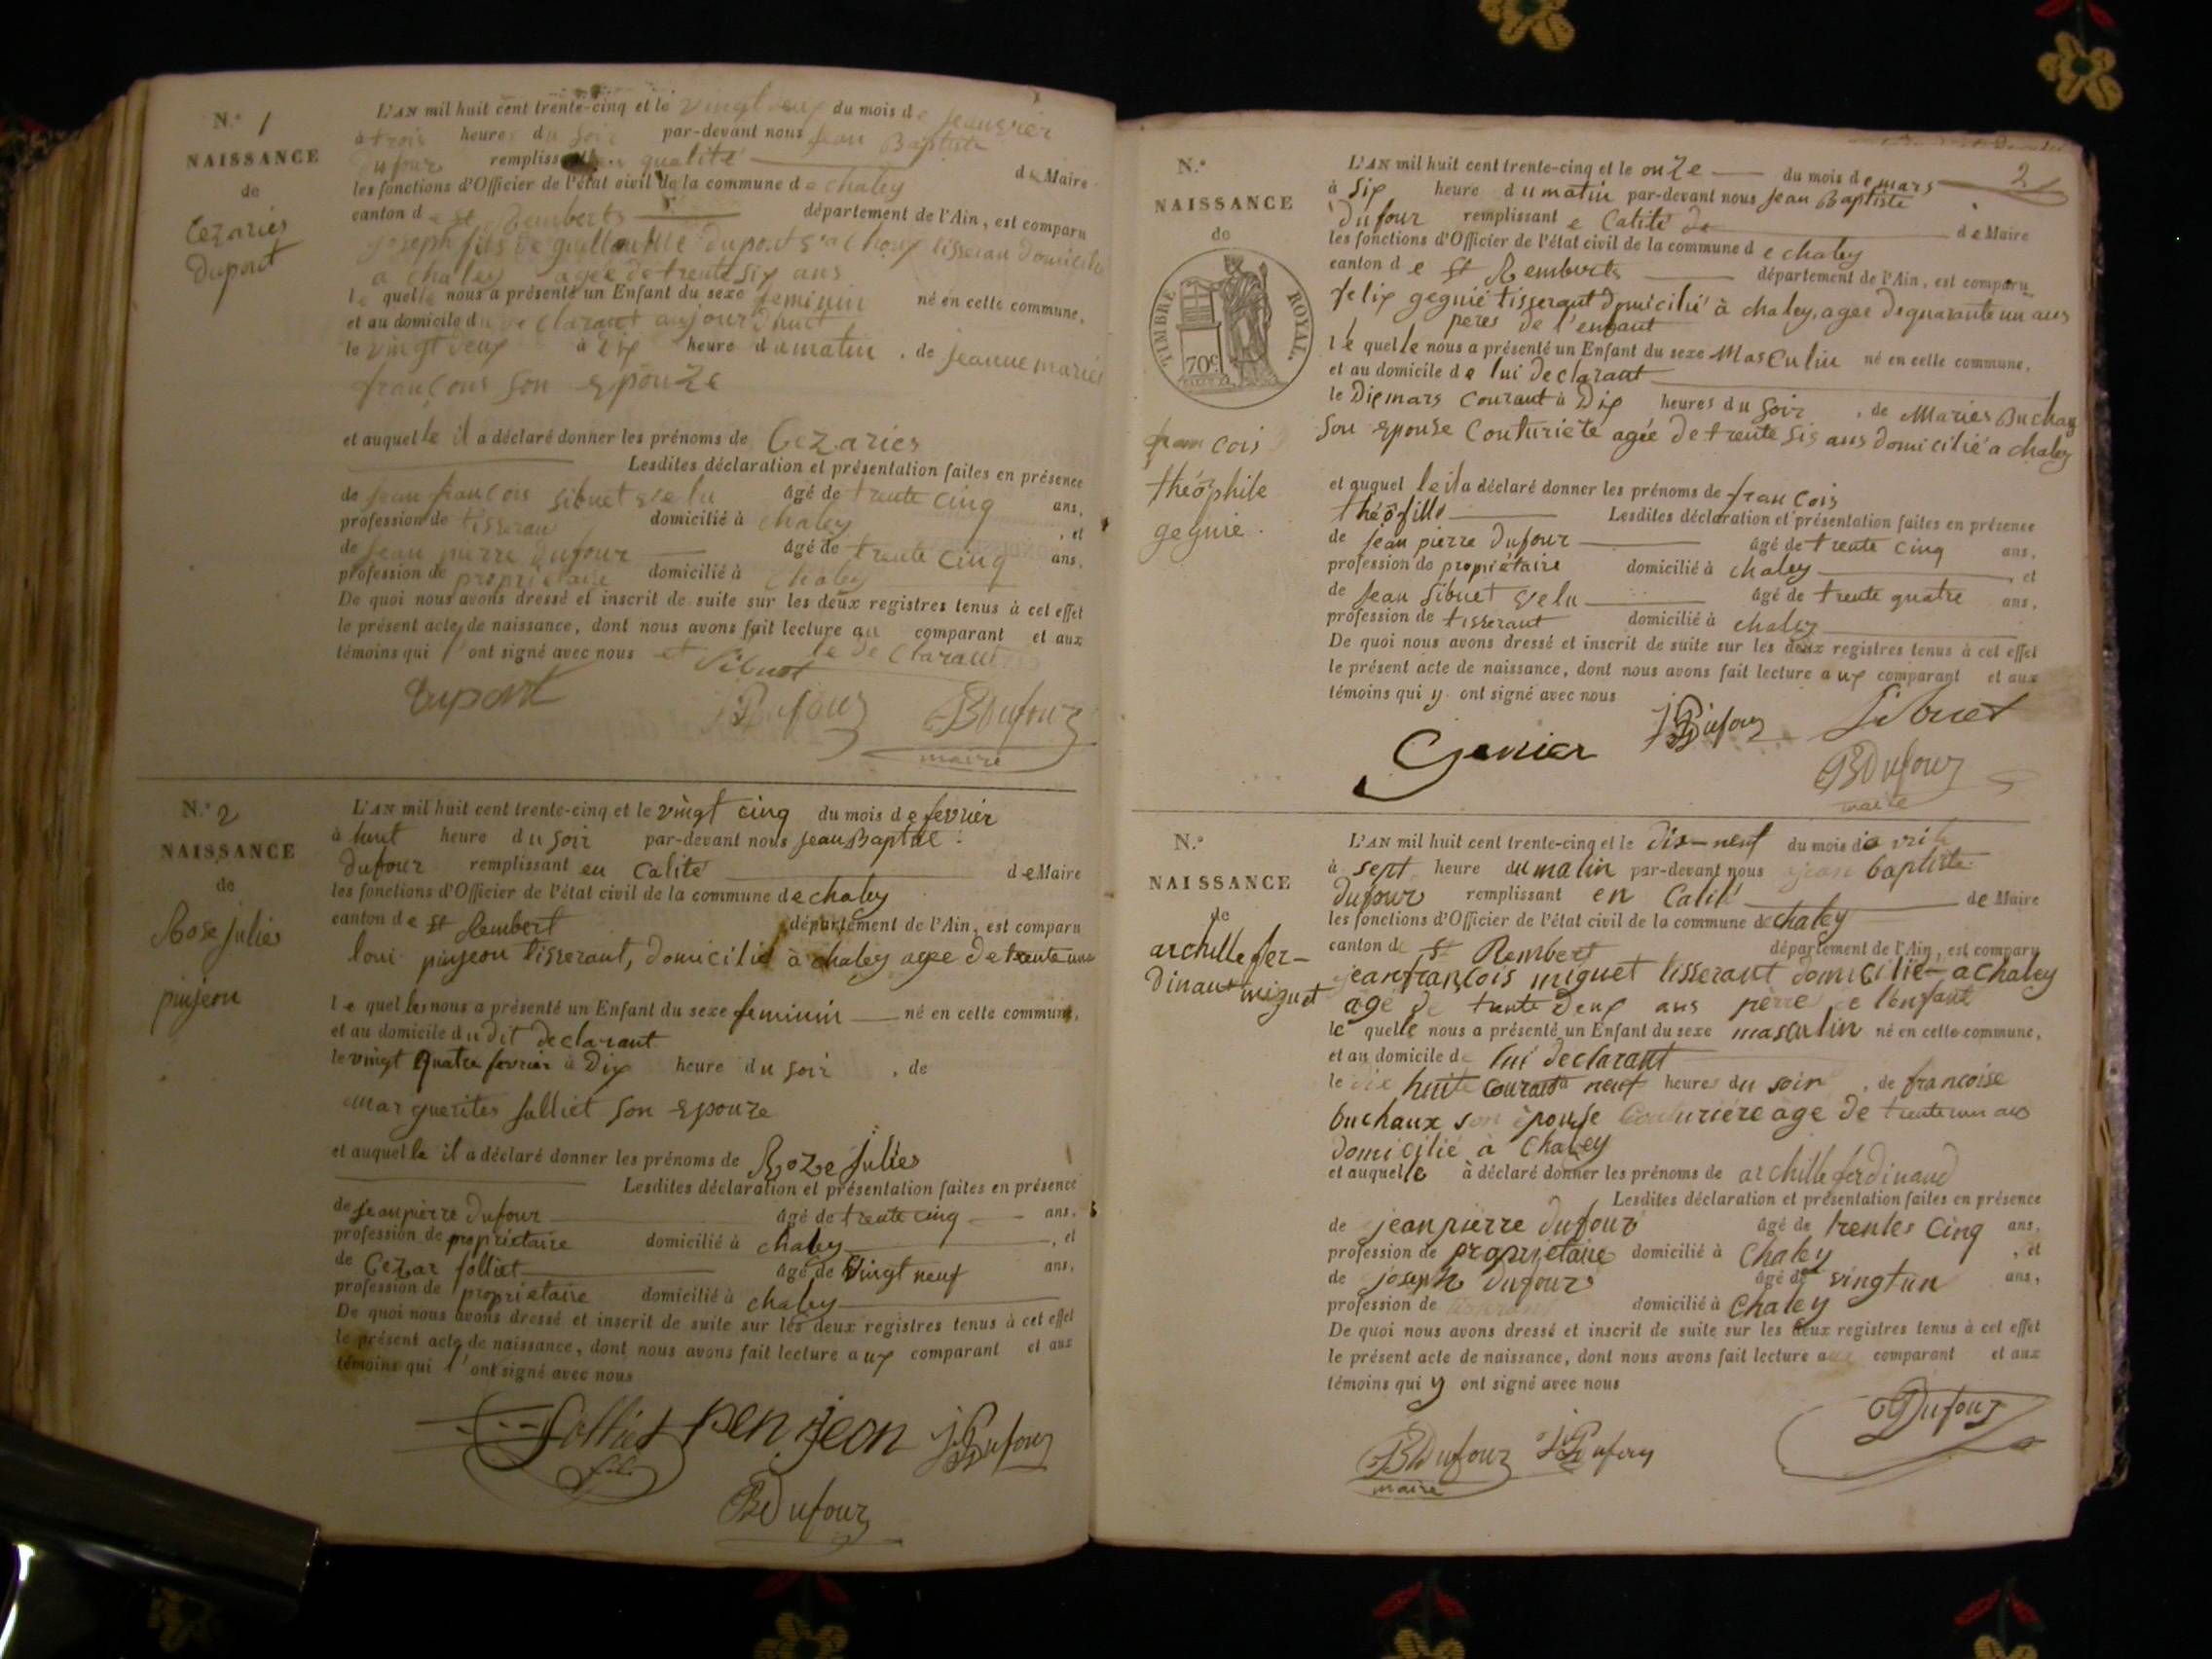 N.° 1
NAISSANCE
de
Cezaries
Dupont
L'AN mil huit cent trente-cinq et le vingt deux du mois de jeanvier
à trois heures du soir par-devant nous jean Baptiste
Dufour remplissant qualité de Maire
les fonctions d'Officier de l'état civil de la commune de chaley
canton de st Remberts département de l'Ain, est comparu
joseph fils de dupont tisseran domicilié
a chaley agée de trente six ans
le quelle nous a présenté un Enfant du sexe feminin né en celle commune,
et au domicile du declarant aujourd'huit
le vingt deux à dix heure du matin, de jeanne maries
françons son epouze
et auquelle il a déclaré donner les prénoms de Cezaries
Lesdites déclaration et présentation faites en présence
de jean francois sibuet âgé de trente cinq ans,
profession de tisseran domicilié à chaley, et
de jean pierre Dufour âgé de trente cinq ans,
profession de propriétaire domicilié à chaley
De quoi nous avons dressé et inscrit de suite sur les deux registres tenus à cet effet
le présent acte de naissance, dont nous avons fait lecture au comparant et aux
témoins qui l'ont signé avec nous et le declarant
Dupont Sibuet
JPDufour BDufour
maire
N.° 2
NAISSANCE
de
Rose julies
pinjeon
L'AN mil huit cent trente-cinq et le vingt cinq du mois de fevrier
à huit heure du soir par-devant nous jean Baptise
Dufour remplissant en calité de Maire
les fonctions d'Officier de l'état civil de la commune de chaley
canton de st Rembert département de l'Ain, est comparu
loui pinjeon tisserant, domicilié à chaley agee de trente
le quelles nous a présenté un Enfant du sexe feminin né en celle commune,
et au domicile du dit declarant
le vingt quatre fevrier à Dix heure du soir, de
marguerites solliet son epouze
et auquelle il a déclaré donner les prénoms de Roze julies
Lesdites déclaration et présentation faites en présence
de jean pierre Dufour âgé de trente cinq ans,
profession de propriétaire domicilié à chaley, et
de Cezar solliet âgé de vingt neuf ans,
profession de propriétaire domicilié à chaley
De quoi nous avons dressé et inscrit de suite sur les deux registres tenus à cet effet
le présent acte de naissance, dont nous avons fait lecture aux comparant et aux
témoins qui l'ont signé avec nous
Solliet penjeon JPDufour
BDufour
2
N.°
NAISSANCE
de
TIMBRE ROYAL.
70c
francois
théophile
gegnie
L'AN mil huit cent trente-cinq et le onze du mois de mars
à six heure du matin par-devant nous jean Baptiste
Dufour remplissant e Calité de de Maire
les fonctions d'Officier de l'état civil de la commune de chaley
canton de st Remberts département de l'Ain, est comparu
felix gegnié tisserant domicilié à chaley, agee de quarante un ans
peres de l'enfant
le quelle nous a présenté un Enfant du sexe Masculin né en celle commune,
et au domicile de lui declarant
le Dix mars Courant à Dix heures du soir, de Maries Buchay
son epouse Couturiete agée de trente sis ans domicilié a chaley
et auquel le il a déclaré donner les prénoms de francois
théofille Lesdites déclaration et présentation faites en présence
de jean pierre Dufour âgé de trente cinq ans,
profession de propriétaire domicilié à chaley, et
de jean sibuet âgé de trente quatre ans,
profession de tisserant domicilié à chaley
De quoi nous avons dressé et inscrit de suite sur les deux registres tenus à cet effet
le présent acte de naissance, dont nous avons fait lecture aux comparant et aux
témoins qui y ont signé avec nous
Genier JPDufour Sibuet
BDufour
maire
N.°
NAISSANCE
de
archille fer-
dinant miguet
L'AN mil huit cent trente-cinq et le dis-neuf du mois d'avril
à sept heure du matin par-devant nous jean baptiste
dufour remplissant en Calité de Maire
les fonctions d'Officier de l'état civil de la commune de chaley
canton de st Rembert département de l'Ain, est comparu
jean françois miguet tisserant domicilié a chaley
age de trente deux ans pèrre de l'enfant
le quelle nous a présenté un Enfant du sexe masculin né en celle commune,
et au domicile de lui declarant
le dix huit courant à neuf heures du soir, de francoise
buchaux son épouse couturière âge de trente un ans
domicilié à Chaley
et auquelle à déclaré donner les prénoms de archille ferdinand
Lesdites déclaration et présentation faites en présence
de jean pierre dufour âgé de trentes cinq ans,
profession de propriétaire domicilié à Chaley, et
de joseph dufour âgé de vingt un ans,
profession de domicilié à Chaley
De quoi nous avons dressé et inscrit de suite sur les deux registres tenus à cet effet
le présent acte de naissance, dont nous avons fait lecture aux comparant et aux
témoins qui y ont signé avec nous
BDufour JPDufour Dufour
maire